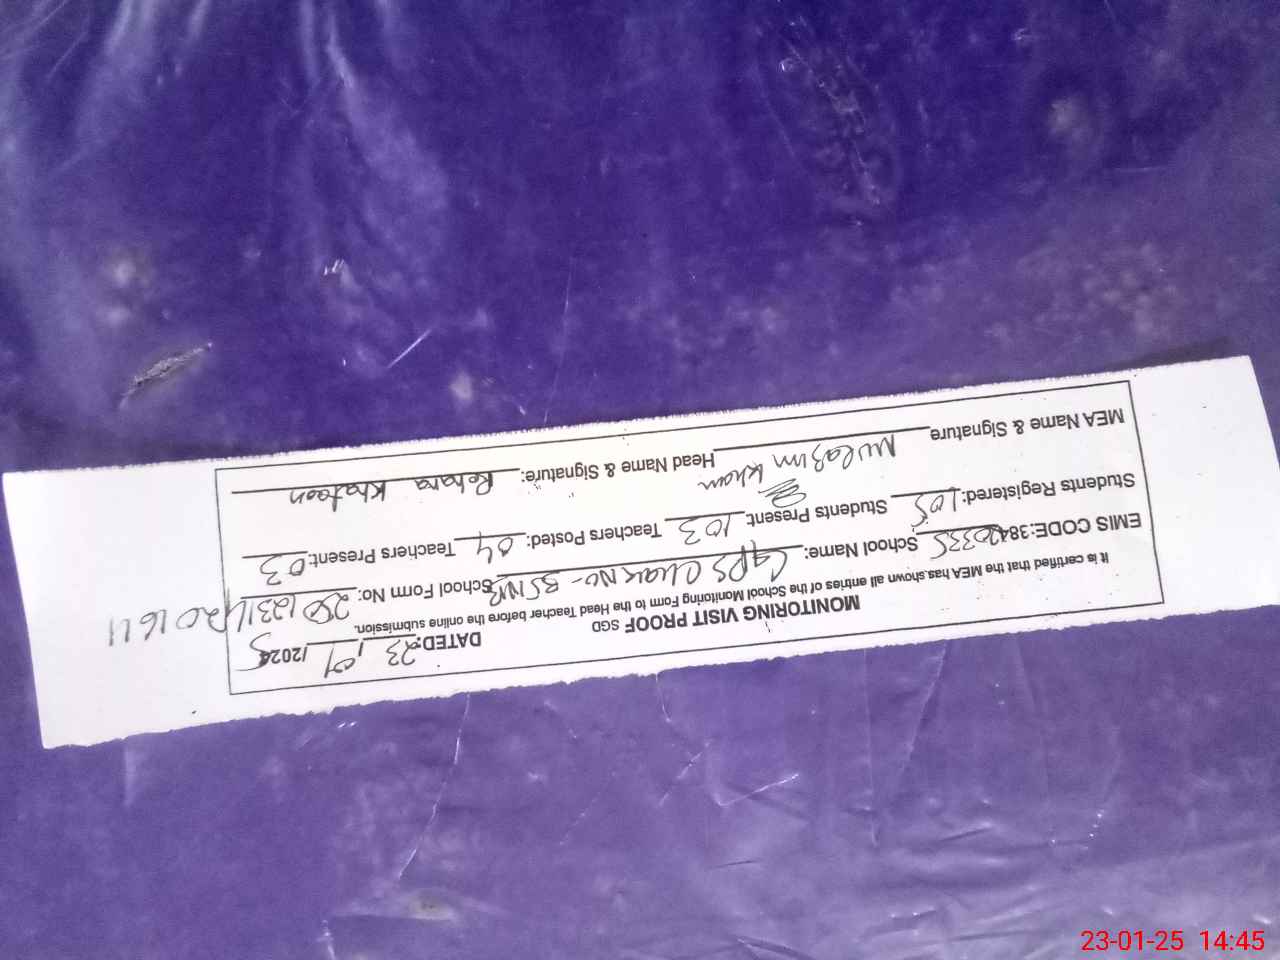 MONITORING VISIT PROOF SGD DATED: 23/01/2025
It is certified that the MEA has shown all entries of the School Monitoring Form to the Head Teacher before the online submission.
EMIS CODE:38420335 School Name: GPS Chak No- School Form No:
Students Registered: 105 Students Present: 103 Teachers Posted: 04 Teachers Present: 03
MEA Name & Signature Mulazim Khan Head Name & Signature: Rehana Khatoon
23-01-25 14:45